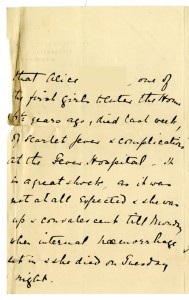 that Alice , one of
the first girls to enter the Home
years ago, died last week,
of scarlet fever & complications
at the Fever Hospital. It
is a great shock, as it was
not at all expected & she was
up & convalescent till Monday
when internal hæmorrhage
set in & she died on Tuesday
night.